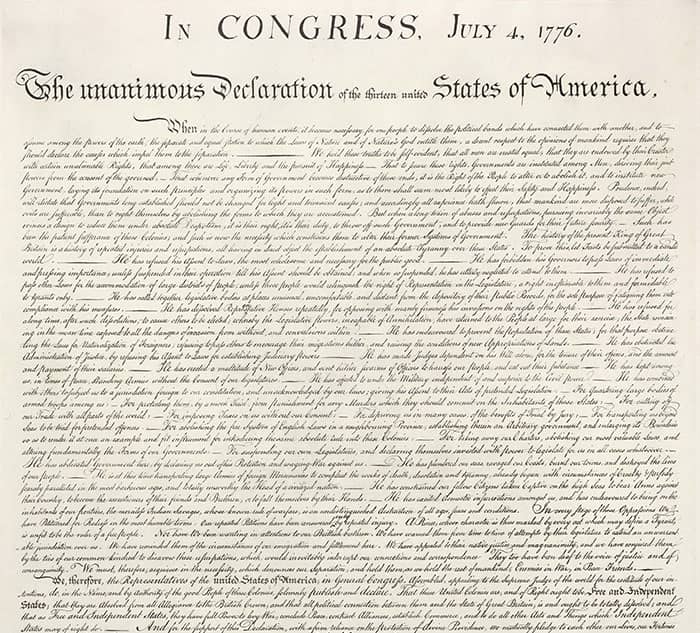 In CONGRESS, July 4, 1776.
The unanimous Declaration of the thirteen united States of America,
When in the Course of human events, it becomes necessary for one people to dissolve the political bands which have connected them with another, and to
assume among the powers of the earth, the separate and equal station to which the Laws of Nature and of Nature's God entitle them, a decent respect to the opinions of mankind requires that they
should declare the causes which impel them to the separation. — We hold these truths to be self-evident, that all men are created equal, that they are endowed by their Creator
with certain unalienable Rights, that among these are Life, Liberty and the pursuit of Happiness. — That to secure these rights, Governments are instituted among Men, deriving their just
powers from the consent of the governed, — That whenever any Form of Government becomes destructive of these ends, it is the Right of the People to alter or to abolish it, and to institute new
Government, laying its foundation on such principles and organizing its powers in such form, as to them shall seem most likely to effect their Safety and Happiness. Prudence, indeed,
will dictate that Governments long established should not be changed for light and transient causes; and accordingly all experience hath shewn, that mankind are more disposed to suffer, while
evils are sufferable, than to right themselves by abolishing the forms to which they are accustomed. But when a long train of abuses and usurpations, pursuing invariably the same Object
evinces a design to reduce them under absolute Despotism, it is their right, it is their duty, to throw off such Government, and to provide new Guards for their future security. — Such has
been the patient sufferance of these Colonies; and such is now the necessity which constrains them to alter their former Systems of Government. The history of the present King of Great
Britain is a history of repeated injuries and usurpations, all having in direct object the establishment of an absolute Tyranny over these States. To prove this, let Facts be submitted to a candid
world. — He has refused his Assent to Laws, the most wholesome and necessary for the public good. — He has forbidden his Governors to pass Laws of immediate
and pressing importance, unless suspended in their operation till his Assent should be obtained; and when so suspended, he has utterly neglected to attend to them. — He has refused to
pass other Laws for the accommodation of large districts of people, unless those people would relinquish the right of Representation in the Legislature, a right inestimable to them and formidable
to tyrants only. — He has called together legislative bodies at places unusual, uncomfortable, and distant from the depository of their public Records, for the sole purpose of fatiguing them into
compliance with his measures. — He has dissolved Representative Houses repeatedly, for opposing with manly firmness his invasions on the rights of the people. — He has refused for
a long time, after such dissolutions, to cause others to be elected; whereby the Legislative powers, incapable of Annihilation, have returned to the People at large for their exercise; the State remain-
ing in the mean time exposed to all the dangers of invasion from without, and convulsions within. — He has endeavoured to prevent the population of these States; for that purpose obstruc-
ting the Laws for Naturalization of Foreigners; refusing to pass others to encourage their migrations hither, and raising the conditions of new Appropriations of Lands. — He has obstructed the
Administration of Justice, by refusing his Assent to Laws for establishing Judiciary powers. — He has made Judges dependent on his Will alone, for the tenure of their offices, and the amount
and payment of their salaries. — He has erected a multitude of New Offices, and sent hither swarms of Officers to harrass our people, and eat out their substance. — He has kept among
us, in times of peace, Standing Armies without the Consent of our legislatures. — He has affected to render the Military independent of and superior to the Civil power. — He has combined
with others to subject us to a jurisdiction foreign to our constitution, and unacknowledged by our laws; giving his Assent to their Acts of pretended Legislation: — For Quartering large bodies of
armed troops among us: — For protecting them, by a mock Trial, from punishment for any Murders which they should commit on the Inhabitants of these States: — For cutting off
our Trade with all parts of the world: — For imposing Taxes on us without our Consent: — For depriving us in many cases, of the benefits of Trial by Jury: — For transporting us beyond
Seas to be tried for pretended offences — For abolishing the free System of English Laws in a neighbouring Province, establishing therein an Arbitrary government, and enlarging its Boundaries
so as to render it at once an example and fit instrument for introducing the same absolute rule into these Colonies: — For taking away our Charters, abolishing our most valuable Laws, and
altering fundamentally the Forms of our Governments: — For suspending our own Legislatures, and declaring themselves invested with power to legislate for us in all cases whatsoever. —
He has abdicated Government here, by declaring us out of his Protection and waging War against us. — He has plundered our seas, ravaged our Coasts, burnt our towns, and destroyed the lives
of our people. — He is at this time transporting large Armies of foreign Mercenaries to compleat the works of death, desolation and tyranny, already begun with circumstances of Cruelty & perfidy
scarcely paralleled in the most barbarous ages, and totally unworthy the Head of a civilized nation. — He has constrained our fellow Citizens taken Captive on the high Seas to bear Arms against
their Country, to become the executioners of their friends and Brethren, or to fall themselves by their Hands. — He has excited domestic insurrections amongst us, and has endeavoured to bring on the
inhabitants of our frontiers, the merciless Indian Savages, whose known rule of warfare, is an undistinguished destruction of all ages, sexes and conditions. In every stage of these Oppressions We
have Petitioned for Redress in the most humble terms: Our repeated Petitions have been answered only by repeated injury. A Prince, whose character is thus marked by every act which may define a Tyrant,
is unfit to be the ruler of a free people. Nor have We been wanting in attentions to our Brittish brethren. We have warned them from time to time of attempts by their legislature to extend an unwarrant-
able jurisdiction over us. We have reminded them of the circumstances of our emigration and settlement here. We have appealed to their native justice and magnanimity, and we have conjured them
by the ties of our common kindred to disavow these usurpations, which, would inevitably interrupt our connections and correspondence. They too have been deaf to the voice of justice and of
consanguinity. We must, therefore, acquiesce in the necessity, which denounces our Separation, and hold them, as we hold the rest of mankind, Enemies in War, in Peace Friends. —
We, therefore, the Representatives of the united States of America, in General Congress, Assembled, appealing to the Supreme Judge of the world for the rectitude of our in-
tentions, do, in the Name, and by Authority of the good People of these Colonies, solemnly publish and declare, That these United Colonies are, and of Right ought to be Free and Independent
States; that they are Absolved from all Allegiance to the British Crown, and that all political connection between them and the State of Great Britain, is and ought to be totally dissolved; and
that as Free and Independent States, they have full Power to levy War, conclude Peace, contract Alliances, establish Commerce, and to do all other Acts and Things which Independent
States may of right do. — And for the support of this Declaration, with a firm reliance on the protection of divine Providence, we mutually pledge to each other our Lives, our Fortunes